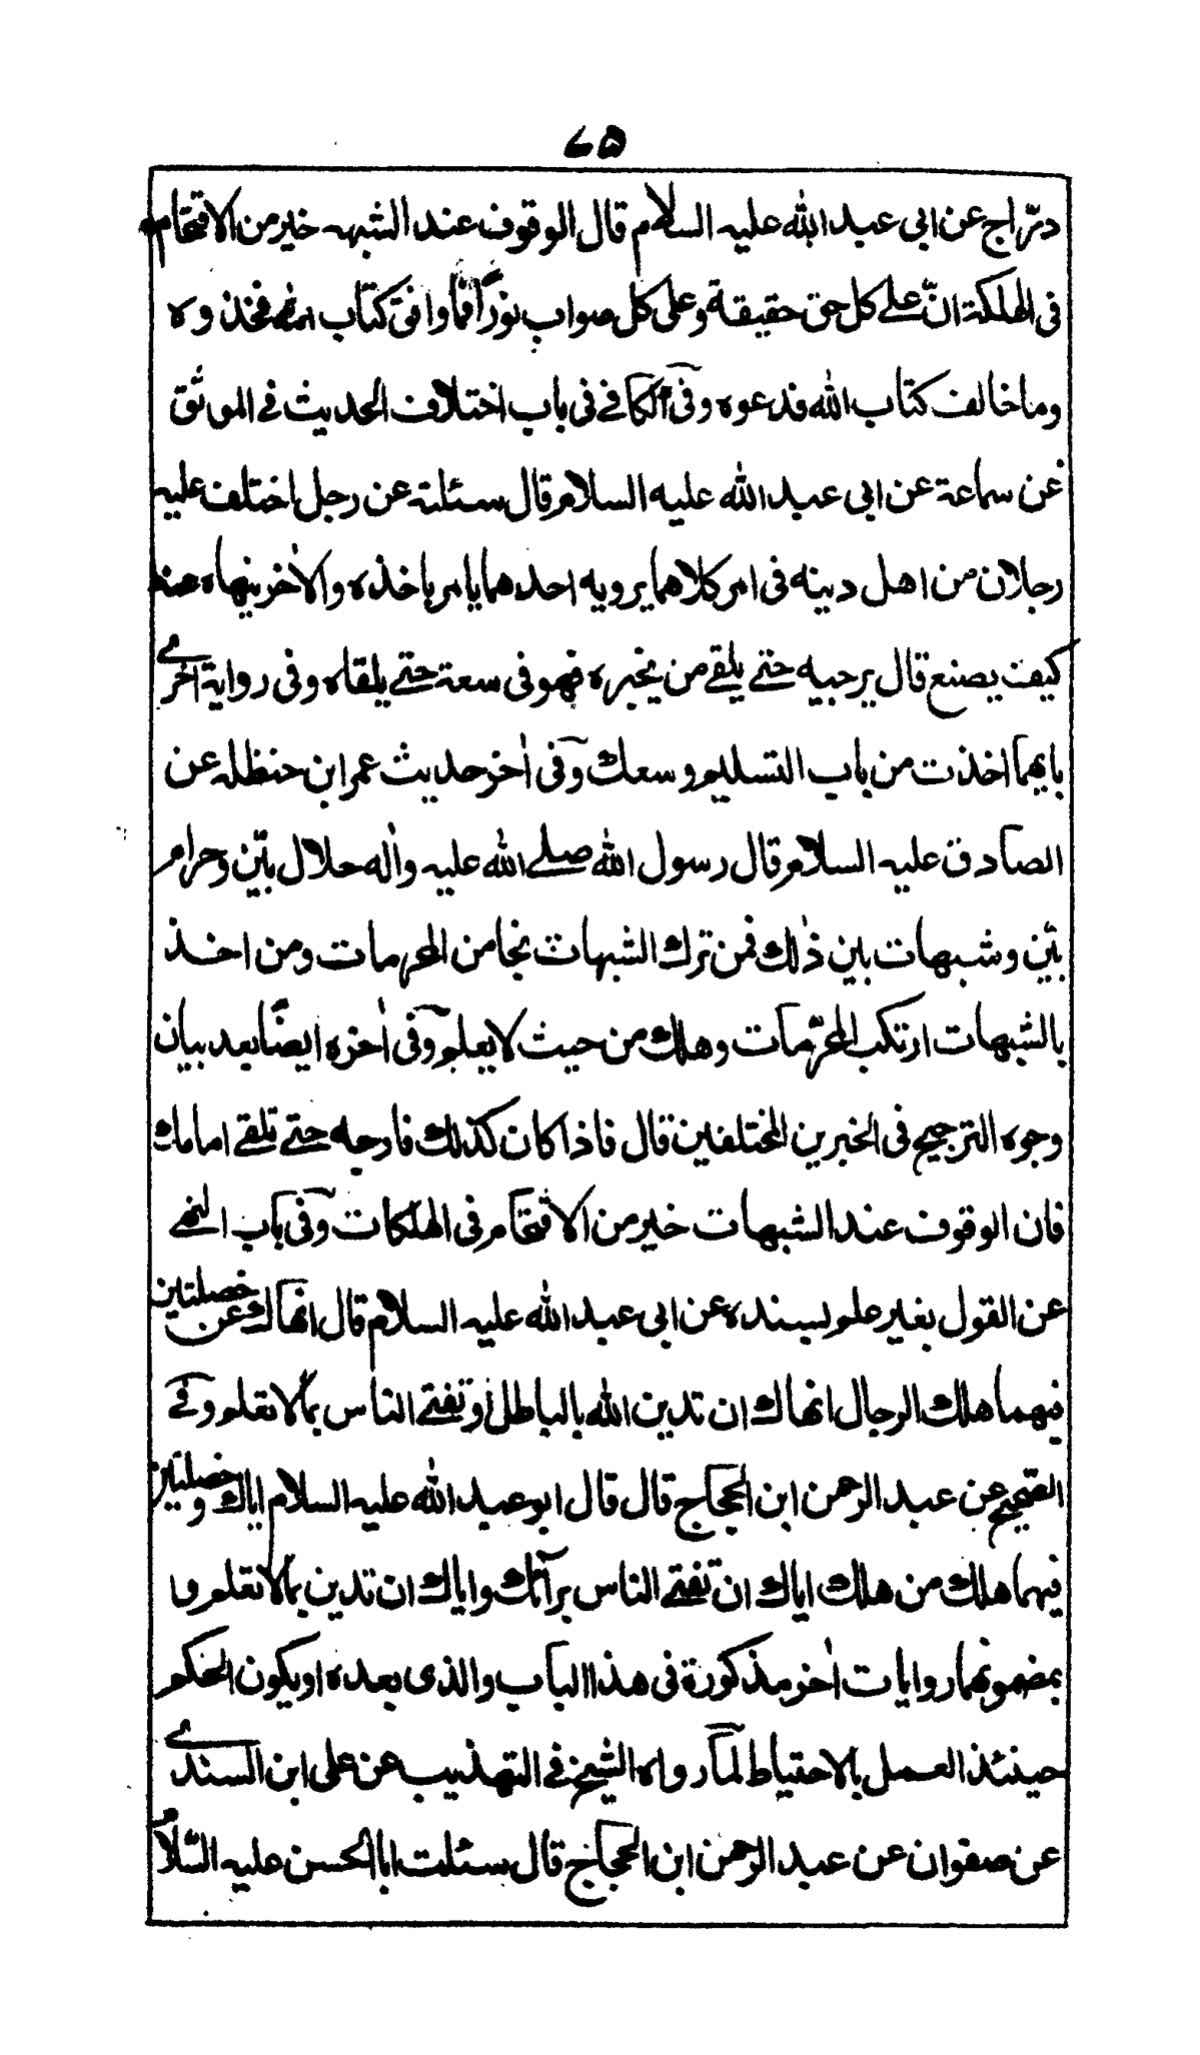 ٧٥
درّاج عن ابى عبد الله عليه السلام قال الوقوف عند الشبهه خير من الاقتحام
فى الهلكة انّ على كل حق حقيقة وعلى كل صواب نوراً فما وافق كتاب الله فخذوه
وما خالف كتاب الله فدعوه وفى الكافے فى باب اختلاف الحديث فے الموثق
عن سماعة عن ابى عبد الله عليه السلام قال سئلته عن رجل اختلف عليه
رجلان من اهل دينه فى امر كلاهما يرويه احدهما يامر باخذه والاٰخر ينهاه عنه
كيف يصنع قال يرجيه حتے يلقے من يخبره فهو فى سعة حتے يلقاه وفى رواية اخرے
بايهما اخذت من باب التسليم وسعك وفى اٰخر حديث عمر ابن حنظله عن
الصادق عليه السلام قال رسول الله صلے الله عليه واٰله حلال بيّن وحرام
بيّن وشبهات بين ذٰلك فمن ترك الشبهات نجا من المحرمات ومن اخذ
بالشبهات ارتكب المحرّمات وهلك من حيث لا يعلم وفى اٰخره ايضًا بعد بيان
وجوه الترجيح فى الخبرين المختلفين قال فاذا كان كذلك فارجه حتے تلقے امامك
فان الوقوف عند الشبهات خير من الاقتحام فى الهلكات وفى باب النهے
عن القول بغير علم بسنده عن ابى عبد الله عليه السلام قال انهاك عن خصلتين
فيهما هلك الرجال انهاك ان تدين الله بالباطل او تفتے الناس بما لا تعلم وفے
الصحيح عن عبد الرحمن ابن الحجاج قال قال ابو عبد الله عليه السلام اياك وخصلتين
فيهما هلك من هلك اياك ان تفتے الناس برأئك واياك ان تدين بما لا تعلم وا
بمضمونهما روايات اٰخر مذكورة فى هذا الباب والذى بعده او يكون الحكم
حينئذ العمل بالاحتياط لما رواه الشيخ فے التهذيب عن على ابن السندے
عن صفوان عن عبد الرحمن ابن الحجاج قال سئلت ابا الحسن عليه السّلام